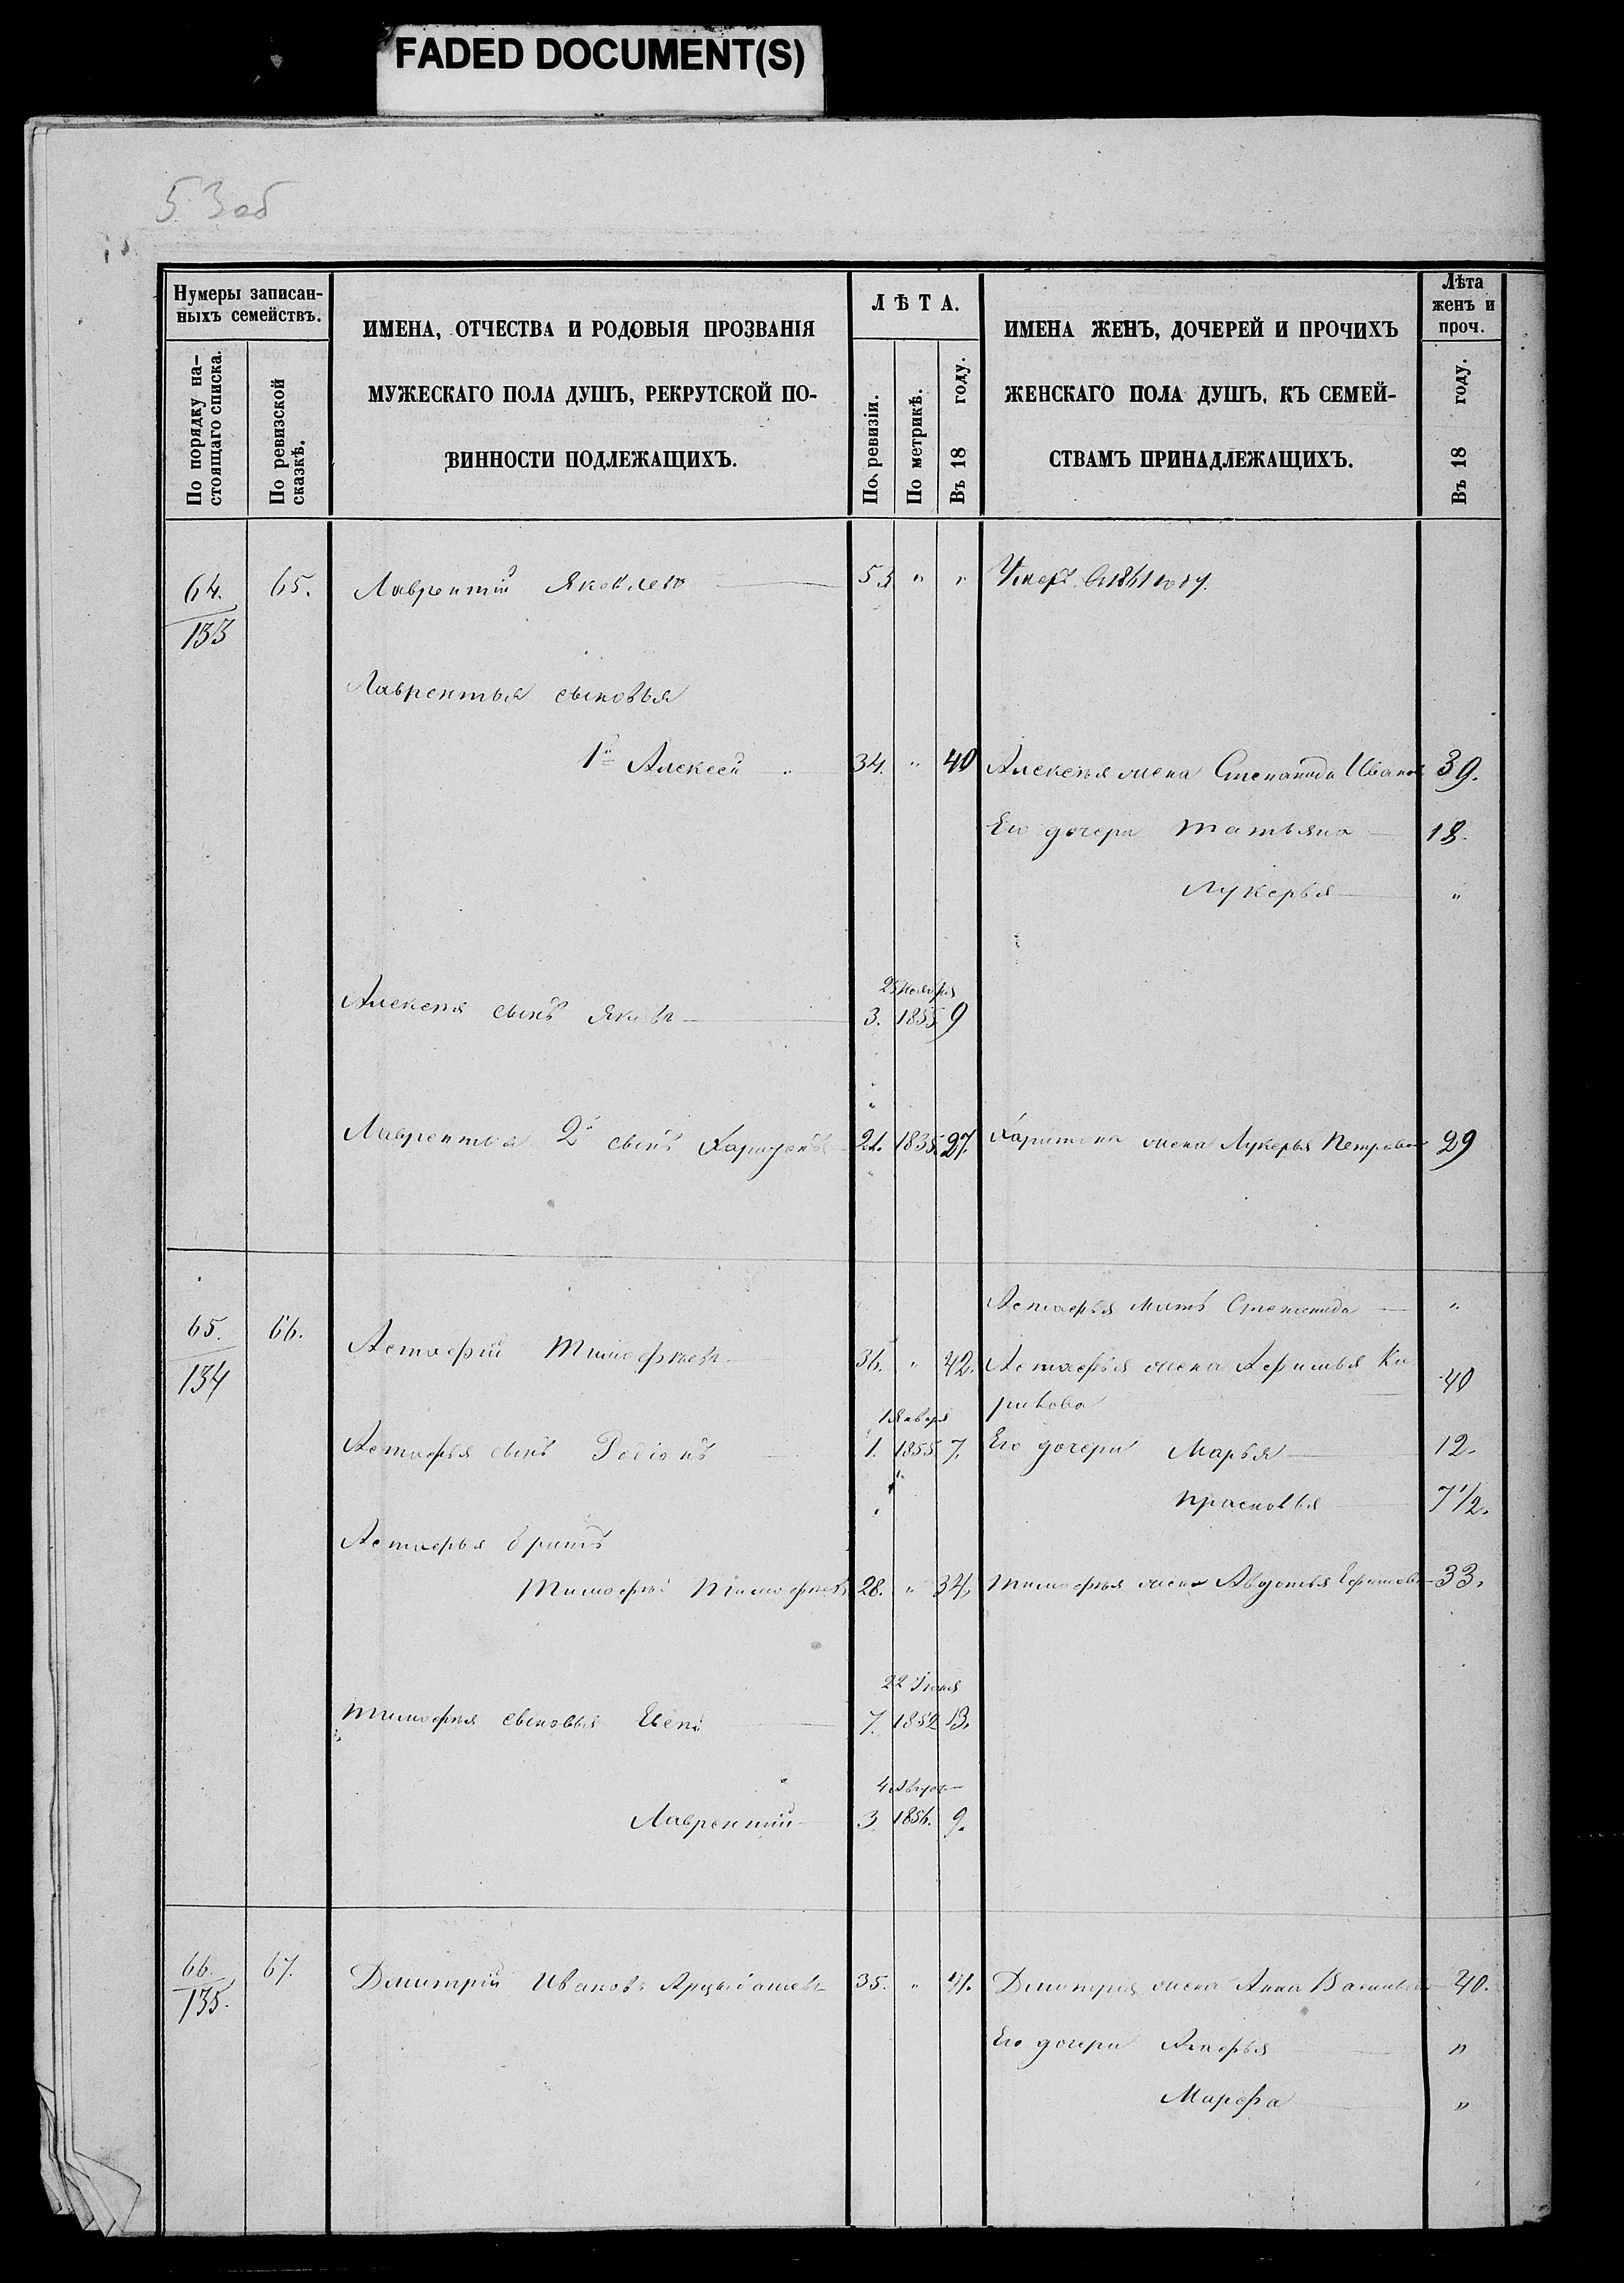 FADED DOCUMENT(S)
53 об
Нумеры записан-
ныхъ семействъ.
По порядку на-
стоящаго списка.
По ревизской
сказкѣ.
ИМЕНА, ОТЧЕСТВА И РОДОВЫЯ ПРОЗВАНІЯ
МУЖЕСКАГО ПОЛА ДУШЪ, РЕКРУТСКОЙ ПО-
ВИННОСТИ ПОДЛЕЖАЩИХЪ.
ЛѢТА.
По ревизіи.
По метрикѣ.
Въ 18 году.
ИМЕНА ЖЕНЪ, ДОЧЕРЕЙ И ПРОЧИХЪ
ЖЕНСКАГО ПОЛА ДУШЪ, КЪ СЕМЕЙ-
СТВАМЪ ПРИНАДЛЕЖАЩИХЪ.
Лѣта
женъ и
проч.
Въ 18 году.
64. 65. Лаврентій Яковлевъ 53 " " Умеръ въ 1861 году.
133
Лаврентья сыновья
1й Алексей 34. " 40 Алексѣя жена Степанида Иванов 39.
Его дочери Татьяна 18.
Лукерья "
25 Ноября
Алексѣя сынъ Яковъ 3. 1855 9
Лаврентья 2й сынъ Харитонъ 21. 1835. 27. Харитона жена Лукерья Петрова 29
Астафья мать Степанида "
65. 66. Астафій Тимофѣевъ 36. " 42. Астафья жена Афимья Ки
134
рикова 40
1 Января
Астафья сынъ Родіонъ 1. 1855. 7. Его дочери Марья 12.
Прасковья 7 1/2.
Астафья братъ
Тимофѣй Тимофѣевъ 28. " 34. Тимофѣя жена Авдотья Ефимова 33.
22 Іюня
Тимофѣя сыновья Евсѣй 7. 1852 13.
4 Август
Лаврентій 3 1856. 9.
66. 67. Дмитрій Ивановъ 35. " 41. Дмитрія жена Анна Васильева 40.
135.
Его дочери "
Марфа "